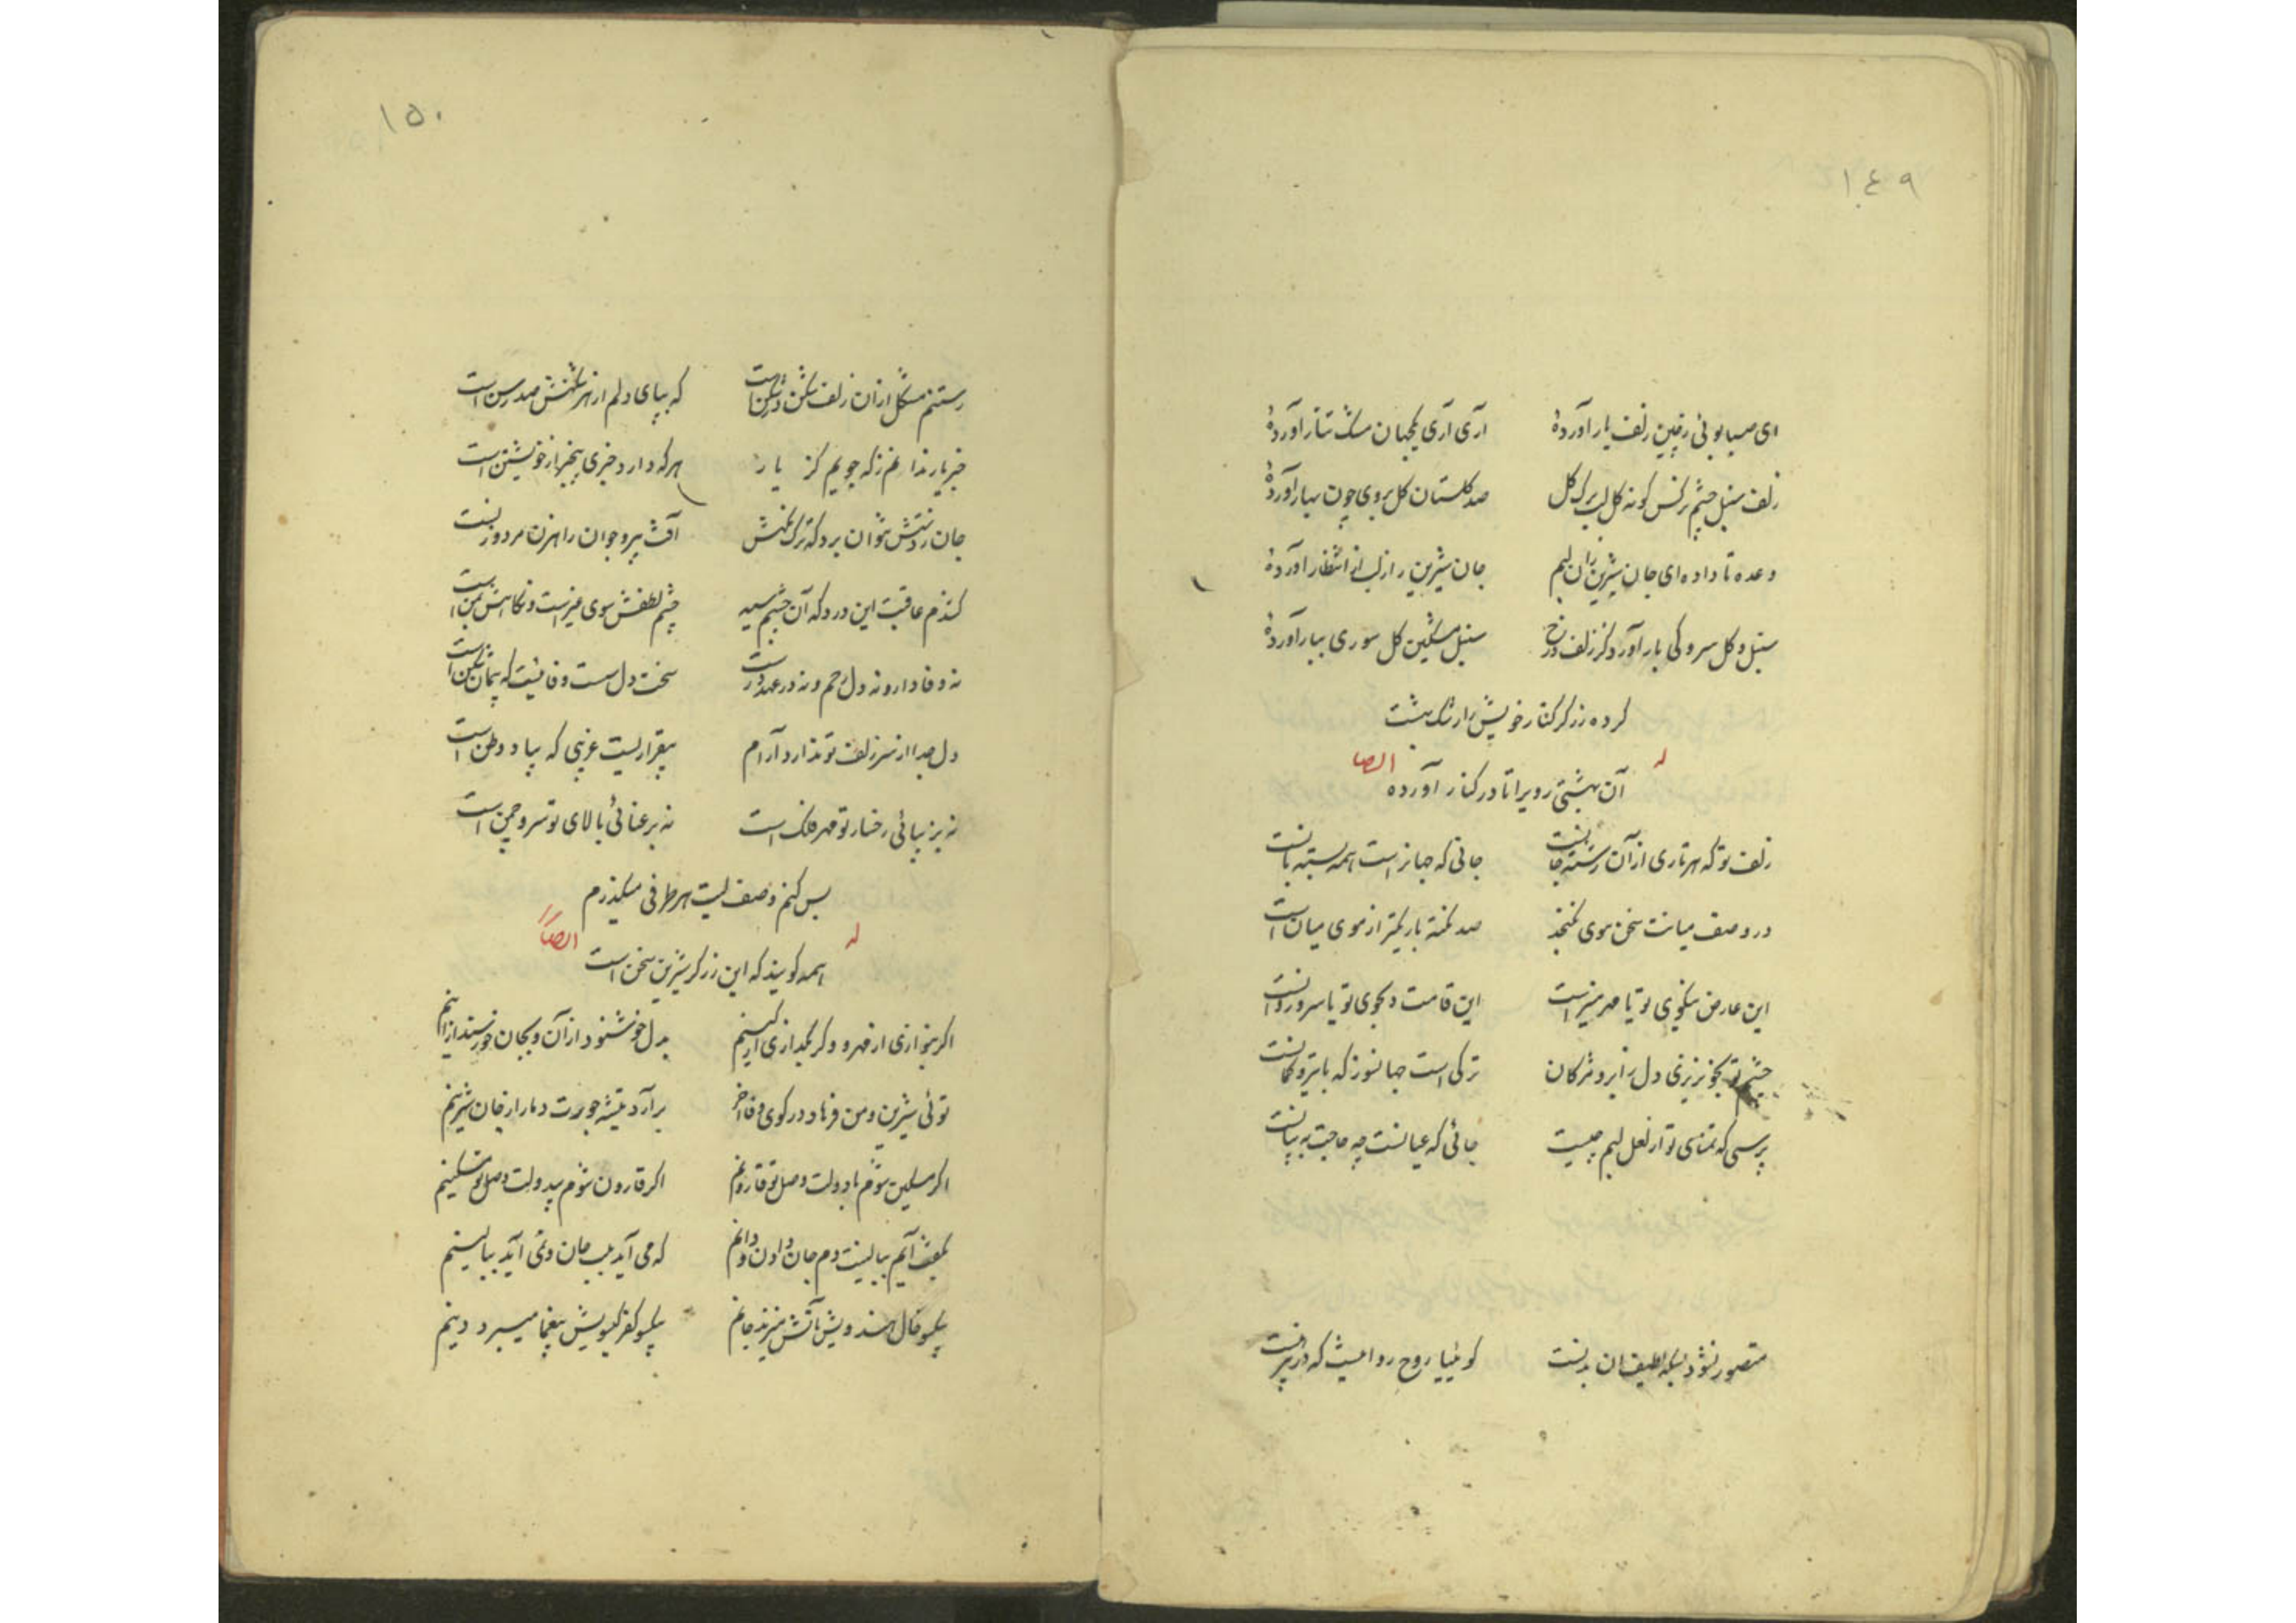 ١٤٩
ای صبا بوئی ز چین زلف یار آوردهٔ آری آری یکجهان مشک تتار آوردهٔ
زلف سنبل چشم نرکس کونه کل لب برک کل صد کلستان کل بروی چون بهار آوردهٔ
وعده تا داده‌ای جان شیرین را بلبم جان شیرین را بلب از انتظار آوردهٔ
سنبل و کل سرو کی بار آورد کز زلف و رخ سنبل مشکین کل سوری ببار آوردهٔ
کرده زرکر کنار خویش را رشک بهشت
له ایضا
آن بهشتی رویرا تا در کنار آورده
زلف تو که هر تاری از آن رشته جانست جانی که جهانراست همه بسته بآنست
در وصف میانت سخن موی نکنجد صد نکته باریکتر از موی میان است
این عارض نیکوی تو یا مهر منیر است این قامت دلجوی تو یا سرو روانست
چشم تو بخونریزی دل ز ابرو و مژکان ترکی است جهانسوز که با تیر و کمانست
پرسی که تمنای تو از لعل لبم چیست جائی که عیانست چه حاجت به بیانست
متصور نشود بسکه لطیف ان بدنست کوئیا روح روانیست که در پیرهنست
١٥٠
رستنم مشکل از آن زلف شکن در شکن است که بپای دلم از هر شکنش صد رسن است
خبر یار ندانم ز که جویم کز یار هرکه دارد خبری بیخبر از خویشتن است
جان ز دستش نتوان برد که ترک نکهش آفت پیر و جوان راهزن مرد و زنست
کشدم عاقبت این درد که آن چشم سیه چشم لطفش سوی غیر است و نکاهش بمن است
نه وفادار و نه دل رحم و نه در عهد درست سخت دل سست وفائیست که پیمان شکن است
دل جدا از سر زلف تو ندارد آرام بیقرار است غریبی که بیاد وطن است
نه بزیبائی رخسار تو مهر فلک است نه برعنائی بالای تو سرو چمن است
بس کنم وصف لبت هر طرفی میکذرم
له ایضاً
همه کویند که این زرکر شیرین سخن است
اکر بنوازی از مهرم و کر بکدازی از کینم بدل خوشنودم از آن و بجان خورسند از اینم
توئی شیرین و من فرهاد در کوی وفا آخر برآرد تیشه جورت دمار از جان شیرینم
اکر مسکین شوم با دولت وصل تو قارونم اکر قارون شوم بیدولت وصل تو مسکینم
بکفت آیم ببالینت دم جان دادن و دانم که می آید بلب جان و نمی آید ببالینم
بیکسو خال هندویش بآتش میزند جانم بیکسو کفر کیسویش بیغما میبرد دینم